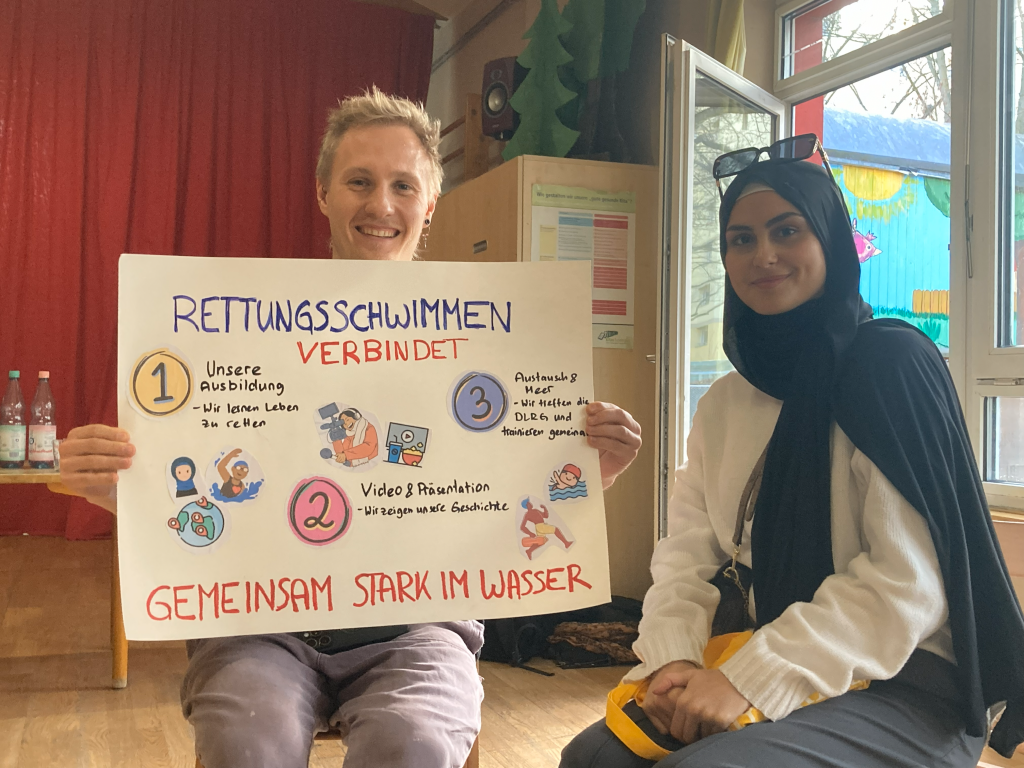 RETTUNGSSCHWIMMEN
VERBINDET
1
Unsere
Ausbildung
- Wir lernen Leben
zu retten
2
Video & Präsentation
- Wir zeigen unsere Geschichte
3
Austausch &
Meer
- Wir treffen die
DLRG und
trainieren gemeinsa
GEMEINSAM STARK IM WASSER